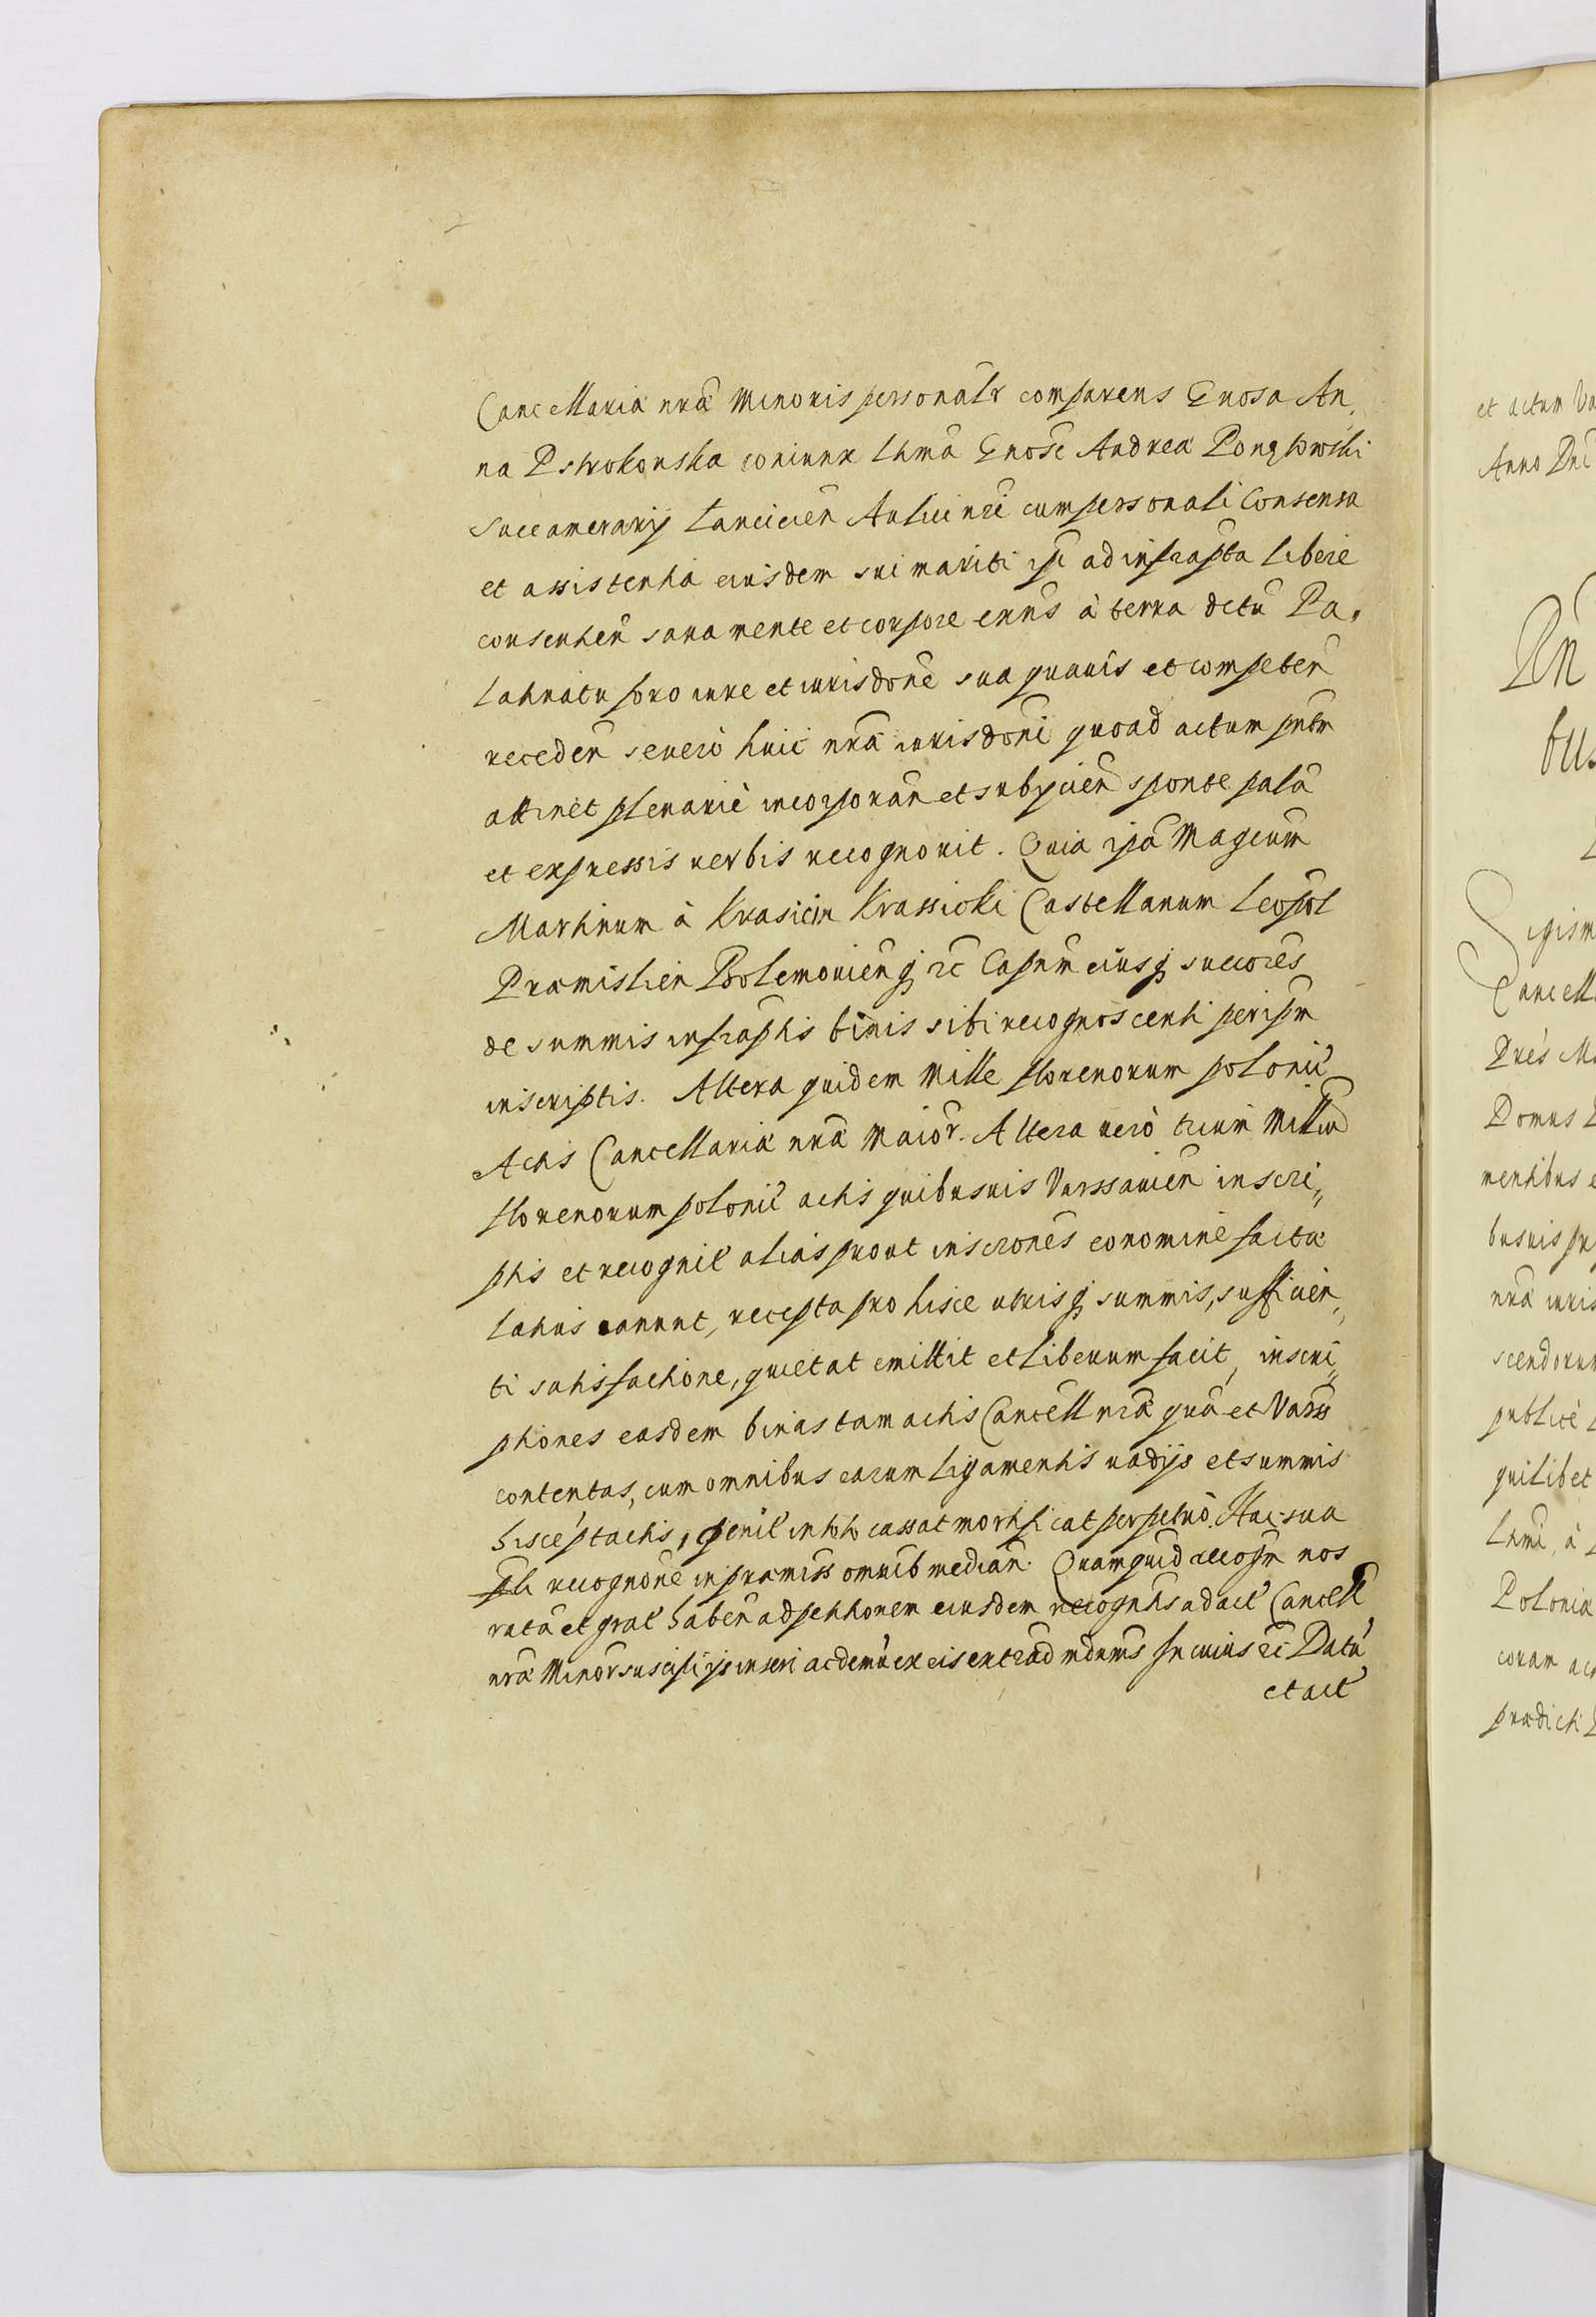 Cancellariæ nrã Minoris personalr comparens Gnosa An,
na Pstrokonska coniunx lhma Gnose Andreæ Pongowski
Succamerarij Lancicien Aulici nri cum personali Consensu
et assistentia eiusdem sui mariti ipi ad infrapta libere
consentien sana mente et corpore exns à terra dctu Pa,
latinatu foro iure et iurisdone sua quauis et competen
receden seuerò huic nrã iurisdoni quoad actum pntm
attinèt plenariè incorporan et subijcien sponte palã
et expressis verbis recognouit. Quia ipã Magcum
Martinum à Krasicin Krassicki Castellanum Leopol
Præmislien Bolemouien q rc Capnm eiusq succores
de summis infraptis binis sibi recognoscenti per ipm
inscriptis. Altera quidem Mille florenorum polonic
Actis Cancellariæ nrã Maior. Altera uerò trium Milliu
florenorum polonic actis quibusuis Varssauien inscri,,
ptis et recognit alias prout inscrones eo nomine factæ
latius canunt, recepta pro hisce utrisq summis, sufficien,
ti satisfactione, quietat emittit et liberum facit, inscri,,
ptiones easdem binas tam actis Cancell nrã quã et Varss
contentas, cum omnibus earum ligamentis uadijs et summis
hisce ptactis, penit in toto cassat mortificat perpetuò. Hac sua
pli recognone in præmiss omnib median. Quam quid recogm nos
ratã et grat haben ad petitionem eiusdem recogntis ad act Cancell
nrã Minor suscipi ijs inseri ac demũ ex eis extrad mdnms In cuius rei Datũ
et act
et actum Va
Anno Dni
bus
Sigism
Cancell
Prés Ma
Domus
mentibus e
busuis pr
nrã iuris
scendorum
publicè
quilibet
lhmi, à
Polonia
coram ac
prædicti